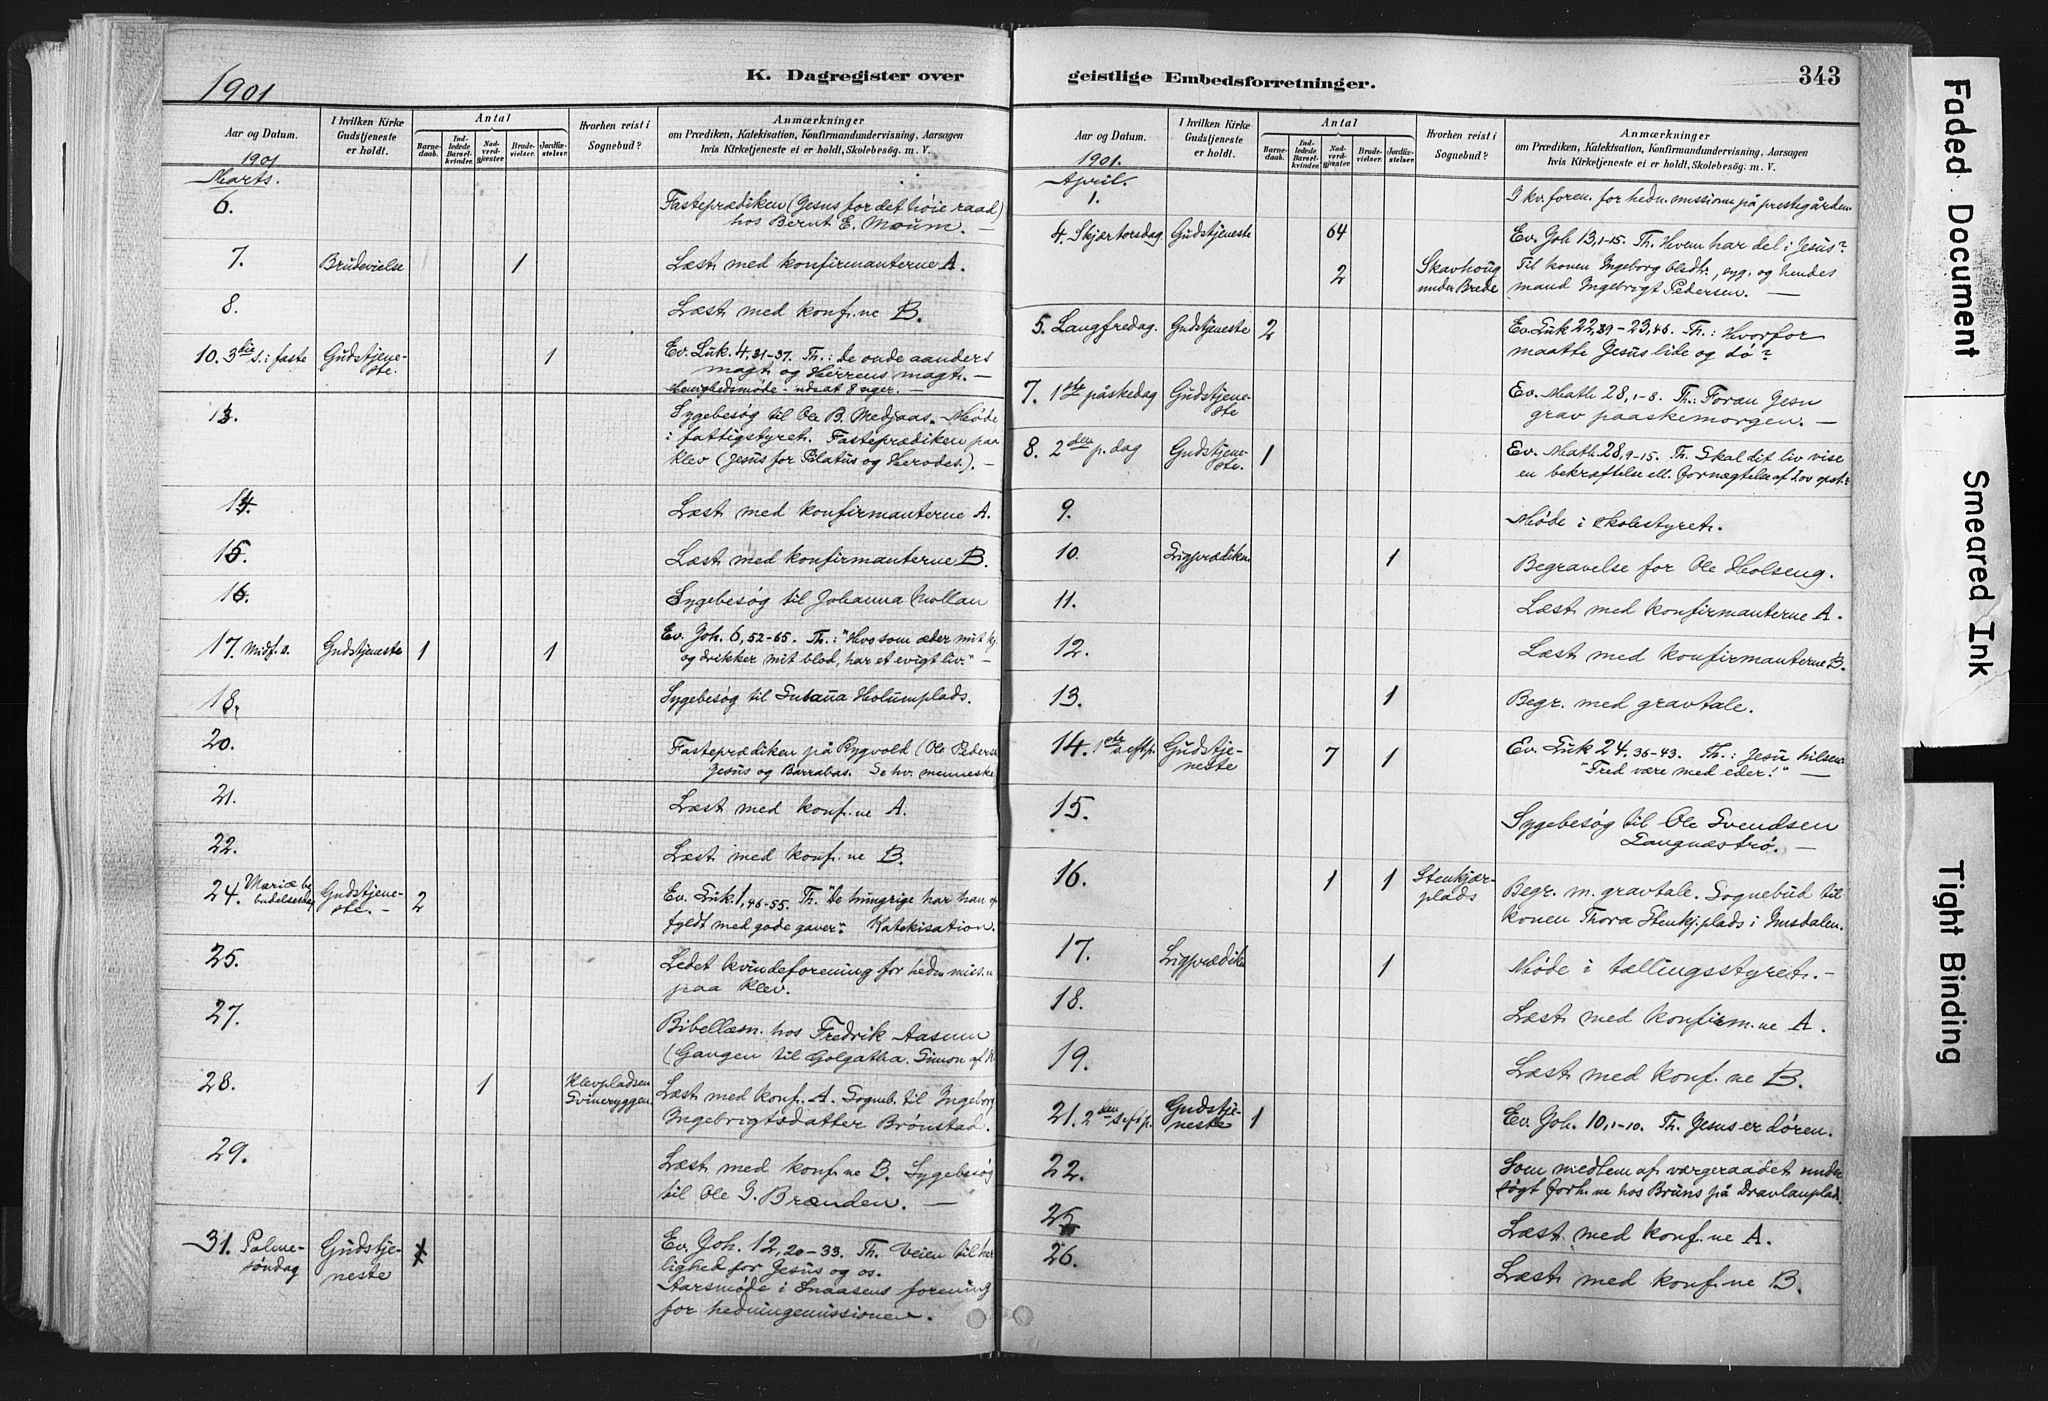 1901
K. Dagregister over
Aar og Datum.
I hvilken Kirke Gudstjeneste er holdt.
Antal
Barnedaab.
Indledede Barselkvinder.
Nadverdgjæster
Brudevielser.
Jordfæstelser.
Hvorhen reist i Sognebud?
Anmærkninger
om Prædiken, Katekisation, Konfirmandundervisning, Aarsagen
hvis Kirketjeneste ei er holdt, Skolebesøg. m. V.
1901
Marts.
6. Fasteprædiken (Jesus for det høie raad)
hos Bernt E. Moum. —
7. Brudevielse 1 Læst med konfirmanterne A.
8. Læst med konf.ne B.
10. 3die s. i faste Gudstjeneste. 1 Ev. Luk. 4,31-37. Th.: De onde aanders
magt og Herrens magt. —
Menighedsmøde - udsat 8 uger. —
13. Sygebesøg til Ole B. Medjaas. Møde
i fattigstyret. Fasteprædiken paa
Klev (Jesus for Pilatus og Herodes.). —
14. Læst med konfirmanterne A.
15. Læst med konfirmanterne B.
16. Sygebesøg til Johanna Mollan
17. Midf. s. Gudstjeneste 1 1 Ev. Joh. 6,52-65. Th.: "Hvo som æder mit kj.
og drikker mit blod, har et evigt liv." —
18. Sygebesøg til Susanna Holumplads.
20. Fasteprædiken på Rygvold (Ole Peders
Jesus og Barrabas. Se hv. menneske
21. Læst med konf.ne A.
22. Læst med konf.ne B.
24. Mariæ bebudelsesdag Gudstjeneste. — 2 Ev. Luk. 1,46-55. Th. "De hungrige har han op
fyldt med gode gaver". Katekisation.
25. Ledet kvindeforening for hedn. miss.n
paa Klev.
27. Bibellæsn. hos Fredrik Aasum
(Gangen til Golgatha. Simon af K
28. 1 Klevpladsen Svineryggen. Læst med konf. A. Sogneb. til Ingeborg
Ingebrigtsdatter Brønstad.
29. Læst med konf.ne B. Sygebesøg
til Ole J. Brænden. —
31. Palmesøndag Gudstjeneste Ev. Joh. 12,20-33. Th. Veien til her
lighed for Jesus og os.
Aarsmøde i Snaasens forening
for hedningemissionen.
geistlige Embedsforretninger.
343
Aar og Datum.
I hvilken Kirke Gudstjeneste er holdt.
Antal
Barnedaab.
Indledede Barselkvinder.
Nadverdgjæster
Brudevielser.
Jordfæstelser.
Hvorhen reist i Sognebud?
Anmærkninger
om Prædiken, Katekisation, Konfirmandundervisning, Aarsagen
hvis Kirketjeneste ei er holdt, Skolebesøg. m. V.
1901.
April.
1. I kv.foren. for hedn. missionen på prestegården
4. Skjærtorsdag Gudstjeneste 64 Ev. Joh 13,1-15. Th. Hvem har del i Jesus?
2 Skavhoug under Brede Til konen Ingeborg Olsdtr., syg, og hendes
mand Ingebrigt Pedersen. —
5. Langfredag. Gudstjeneste 2 Ev. Luk 22,39 - 23,46. Th.: Hvorfor
maatte Jesus lide og dø?
7. 1ste påskedag Gudstjeneste Ev. Math 28,1-8. Th.: Foran Jesu
grav paaskemorgen. —
8. 2den p. dag Gudstjeneste. 1 Ev. Math 28,9-15. Th. Skal dit liv vise
en bekræftelse ell. fornægtelse af
9. Møde i skolestyret.
10. Ligprædiken 1 Begravelse for Ole Holseng.
11. Læst med konfirmanterne A.
12. Læst med konfirmanterne B.
13. 1 Begr. med gravtale.
14. 1ste s. eft. p. Gudstjeneste 7 1 Ev. Luk 24.36-43. Th.: Jesu hilsen
"Fred være med eder!" —
15. Sygebesøg til Ole Svendsen
Langnæstrø. —
16. 1 1 Stenkjærplads Begr. m. gravtale. Sognebud til
konen Thora Stenkj.plads i Imsdalen.
17. Ligprædiken 1 Møde i tællingsstyret. —
18. Læst med konfirm.ne A.
19. Læst med konf.ne B.
21. 2den s. ef. p. Gudstjeneste 1 Ev. Joh. 10,1-10. Th. Jesus er døren.
22. Som medlem af værgeraadet under
søgt forh.ne hos Bruns på Dravlanplads.
25. Læst med konf.ne A.
26. Læst med konf.ne B.
Faded Document
Smeared Ink
Tight Binding